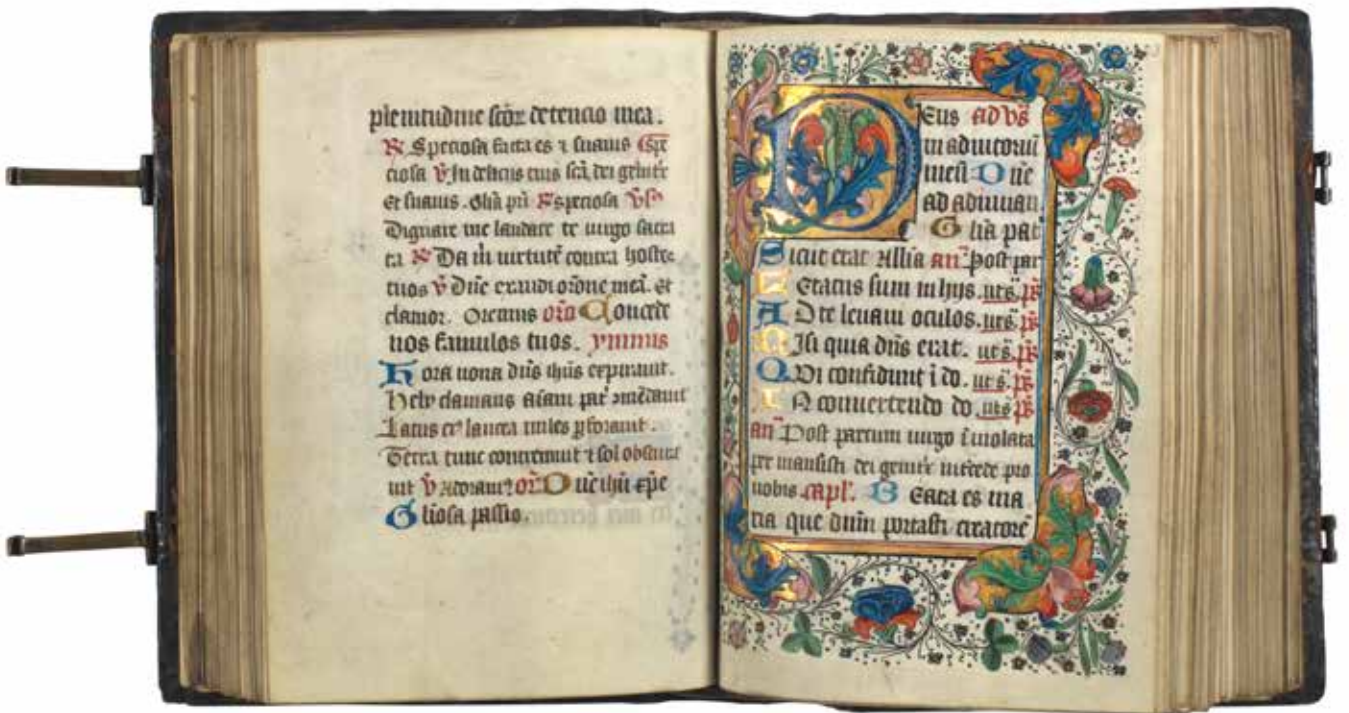 plenitudine scōꝝ detencio mea.
℟ Speciosa facta es ⁊ suauis Spe
ciosa ℣ In deliciis tuis scā dei genitͬ
et suauis. Glīa prī ℟ Speciosa ℣s
Dignare me laudare te uirgo sacra
ta ℟ Da m̄ uirtutē contra hostes
tuos ℣ Dn̄e exaudi orōne meā. Et
clamor. Oremus orō Concede
nos famulos tuos. ymnus
Hora nona dn̄s ihūs expirauit.
Hely clamans aīam patͥ ↄmēdauit
Latus eiꝰ lancea miles ꝑforauit.
Terra tunc contremuit ⁊ sol obscura
uit ℣ Adoramꝰ or̄ Dn̄e ihū xp̄e
Gliosa passio.
DEus ad vs̄
in adiutoriū
meū Dn̄e
ad adiuuan.
Glīa pat
Sicut erat Allīa an̄ Post par
Letatus sum in hijs. ut s̄. ps̄
AD te leuaui oculos. ut s̄. ps̄
NIsi quia dn̄s erat. ut s̄. ps̄
QVi confidunt ī do. ut s̄. ps̄
IN conuertendo do. ut s̄ ps̄
an̄ Post partum uirgo īuiolata
per mansisti dei genitͬ intcede pro
nobis capl'. Beata es ma
ria que dnm̄ portasti creatorē